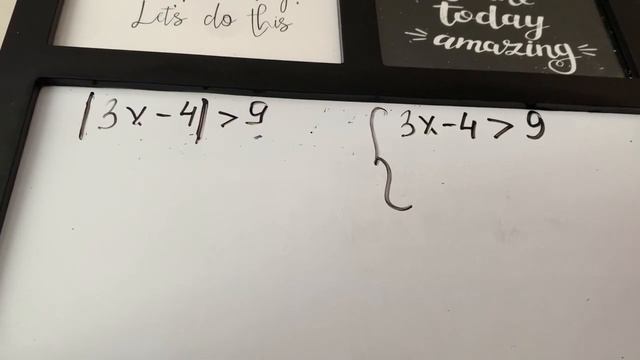 Let's do this
today
amazing
|3x-4|>9
3x-4>9